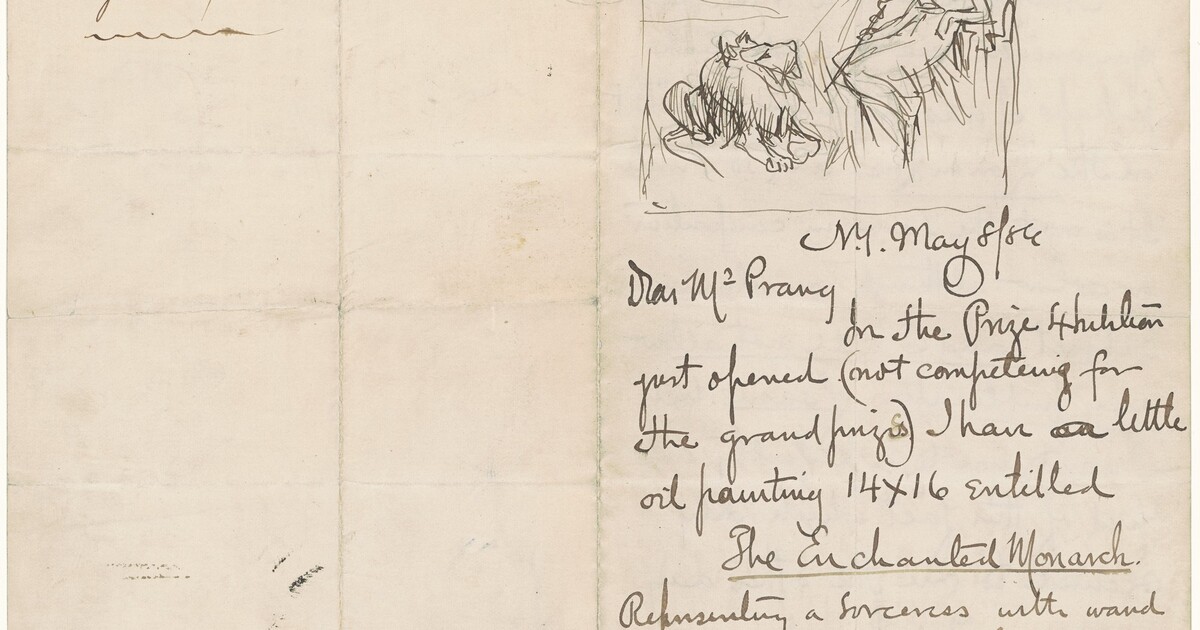 N.Y. May 8/86
Dear Mr Prang
In the Prize Exhibition
just opened (not competing for
the grand prizes) I have a little
oil painting 14x16 entitled
The Enchanted Monarch.
Representing a Sorceress with wand